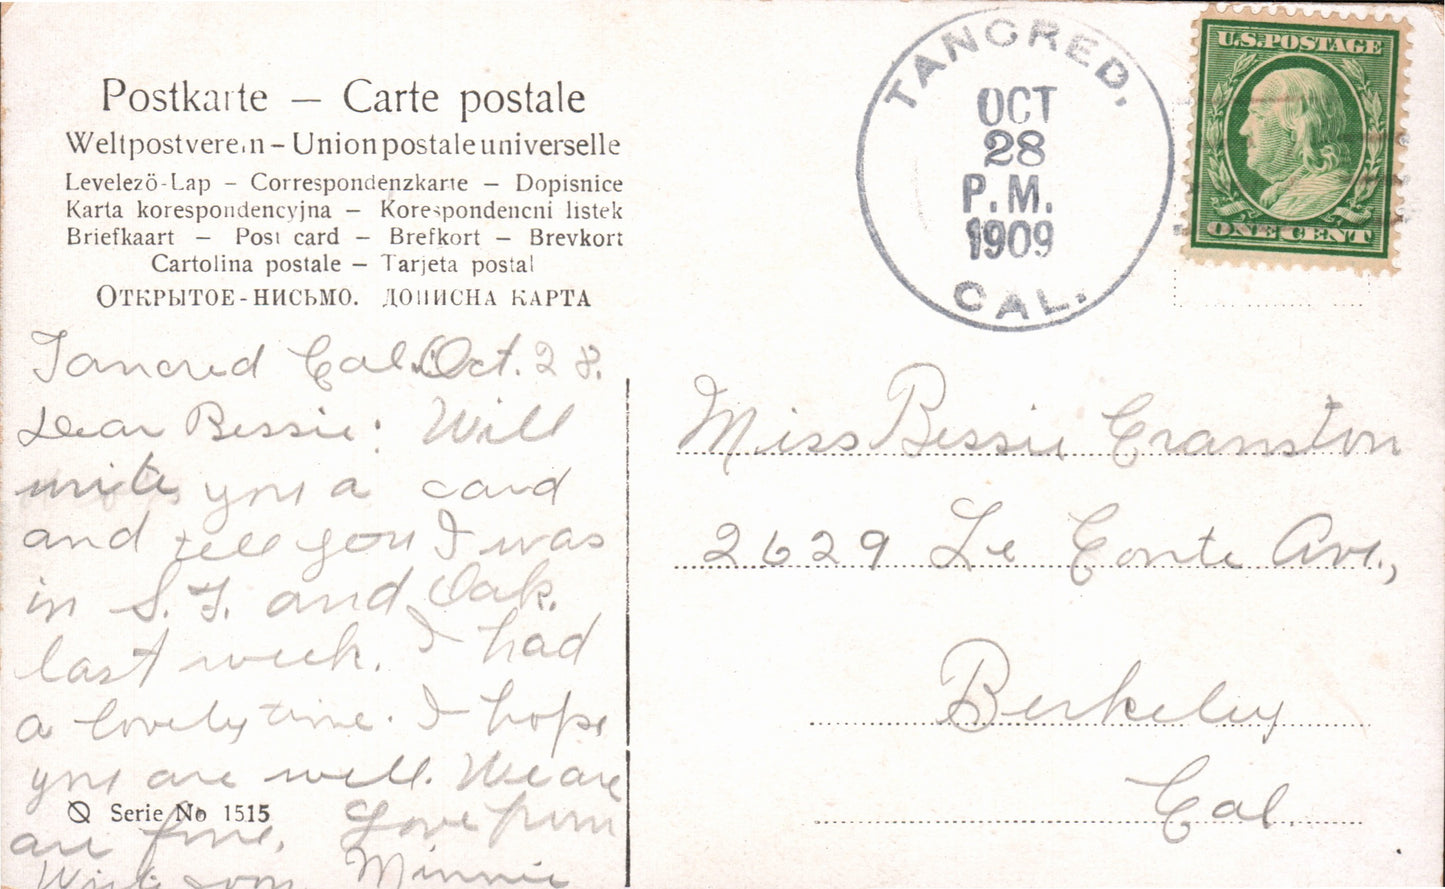 Postkarte — Carte postale
Weltpostverein – Union postale universelle
Levelező-Lap – Correspondenzkarte – Dopisnice
Karta korespondencyjna – Korespondencni listek
Briefkaart – Post card – Brefkort – Brevkort
Cartolina postale – Tarjeta postal
ОТКРЫТОЕ-НИСЬМО. ДОПИСНА КАРТА
TANCRED,
OCT
28
P.M.
1909
CAL.
U.S. POSTAGE
ONE CENT
Tancred Cal. Oct. 28.
Dear Bessie: Will
write you a card
and tell you I was
in S.F. and Oak.
last week. I had
a lovely time. I hope
you are well. We are
are fine. Love from
Write soon. Minnie
Serie No 1515
Miss Bessie Cranston
2629 Le Conte Ave.,
Berkeley
Cal.